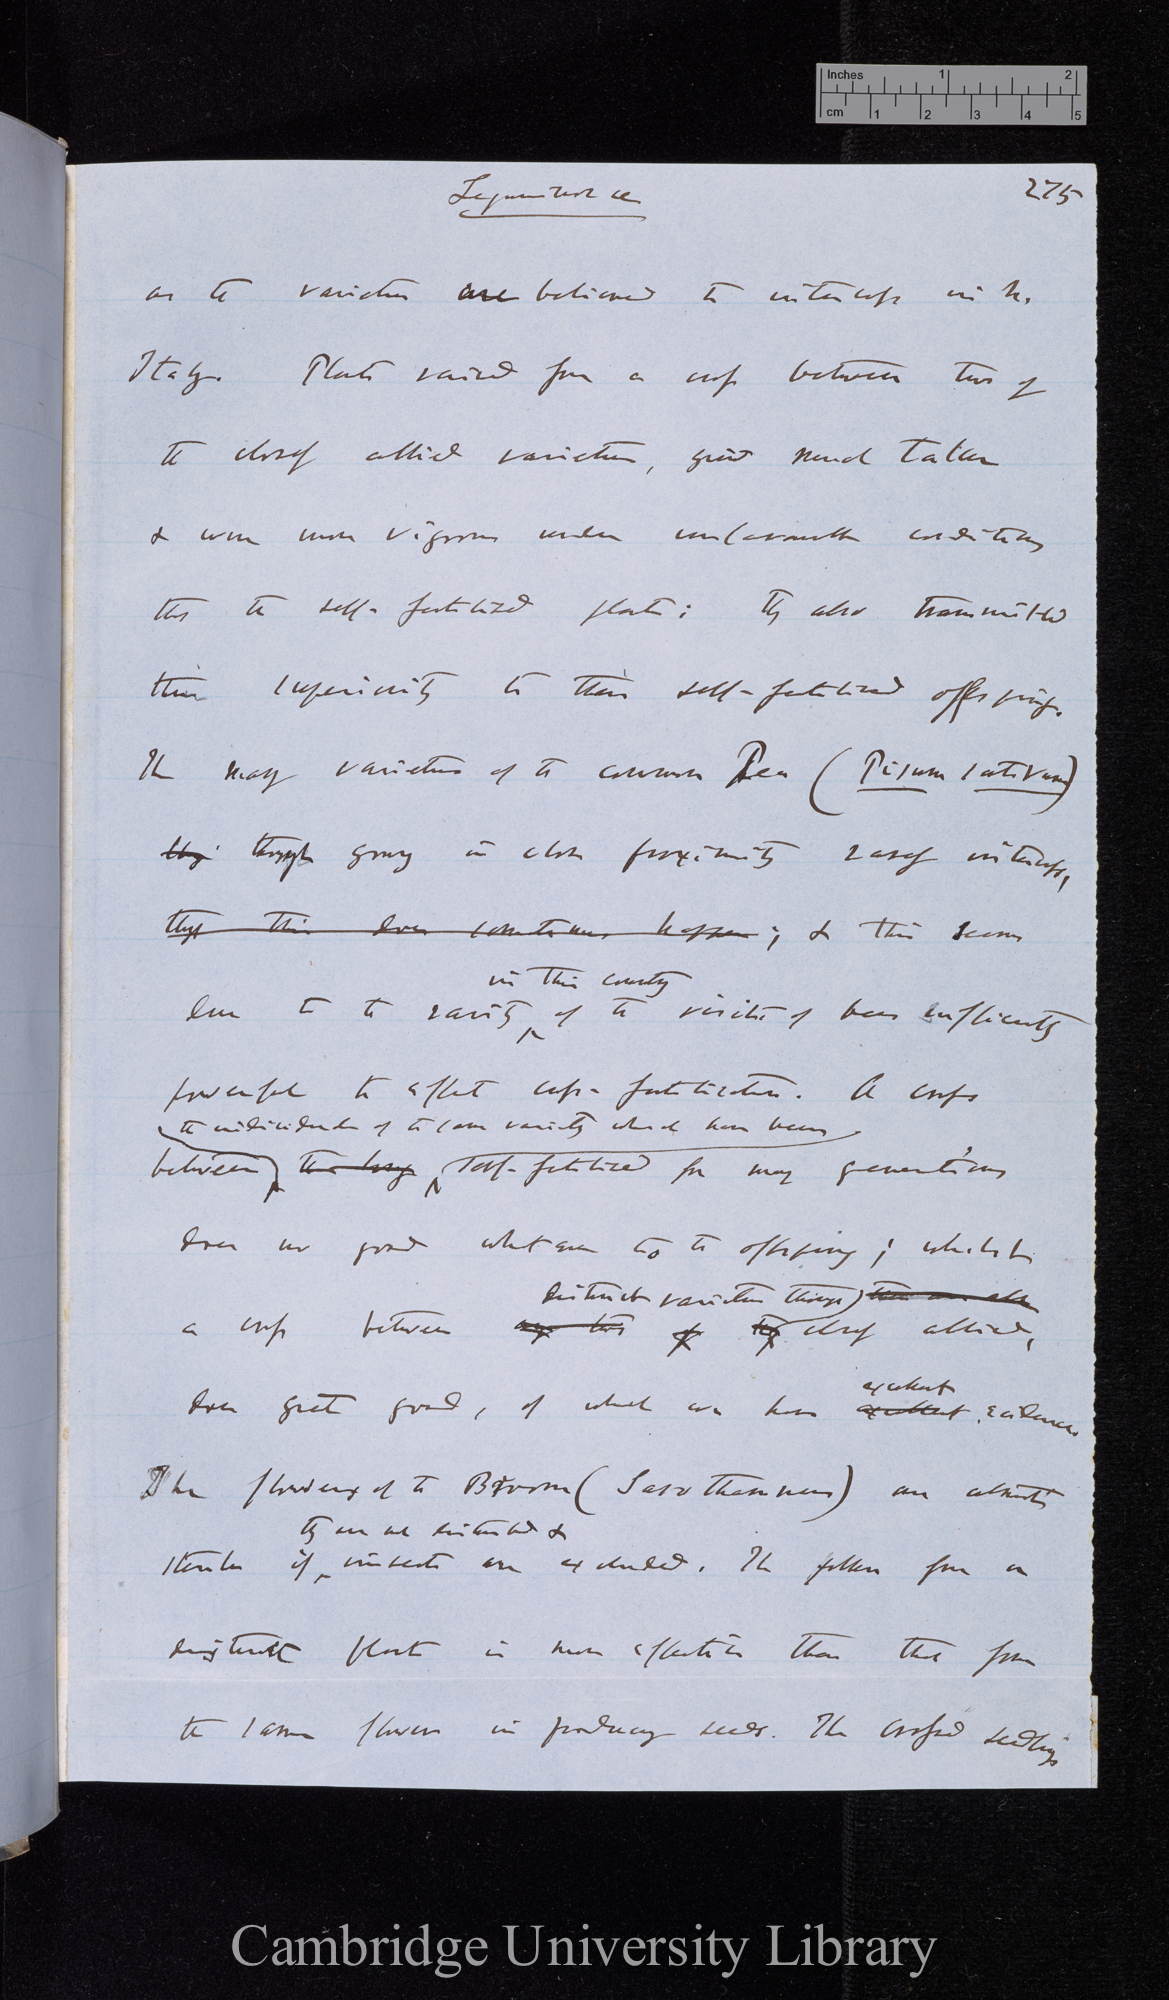 Inches 1 2
cm 1 2 3 4 5
Leguminosae 275
as the varieties are believed to intercross in N.
Italy. Plants raised from a cross between two of
the closely allied varieties, grew much taller
& were more vigorous under unfavourable conditions
than the self-fertilised plants; they also transmitted
their superiority to their self-fertilised offspring.
The many varieties of the common Pea (Pisum sativum)
though growing in close proximity rarely intercross,
though this does sometimes happen; & this seems
in this country
due to the rarity of the visits of bees sufficiently
powerful to effect cross-fertilisation. A cross
the individuals of the same variety which have been
between self-fertilised for many generations
does no good whatever to the offspring; whilst
distinct varieties though
a cross between closely allied,
does great good, of which we have
excellent
excellent evidence.
The flowers of the Broom (Sarothamnus) are almost
they are not disturbed &
sterile if insects are excluded. The pollen from a
distinct plant is more effective than that from
the same flower in producing seeds. The crossed seedlings
Cambridge University Library